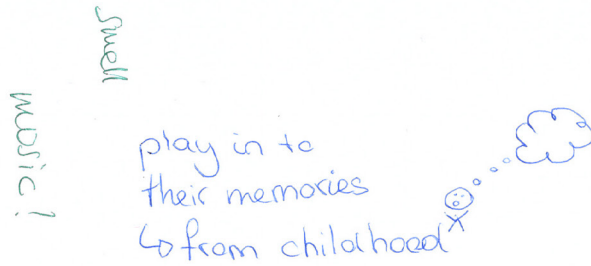 smell
music!
play in to
their memories
↳ from childhood